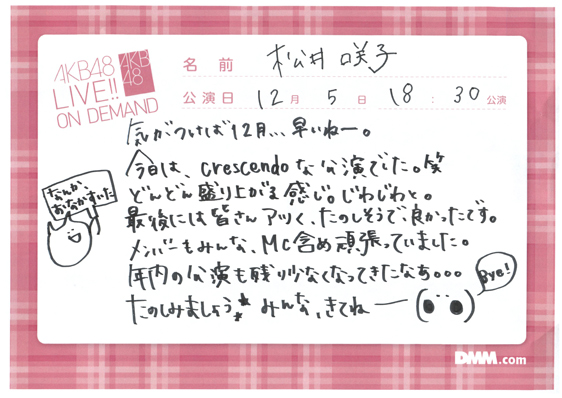 AKB48
LIVE!!
ON DEMAND
AKB
48
名前 松井咲子
公演日 12月 5日 18:30公演
気がつけば12月... 早いねー。
今日は、crescendoな公演でした。笑
どんどん盛り上がる感じ。じわじわと。
最後には皆さんアツく、たのしそうで良かったです。
メンバーもみんな、MC含め頑張っていました。
年内の公演も残り少なくなってきたなぁ。。。
たのしみましょう みんな、きてねー
なんか
おなかすいた
Bye!
DMM.com